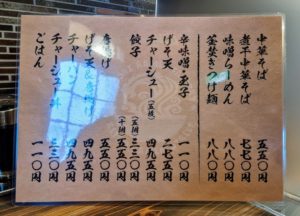 中華そば 五五〇円
煮干中華そば 七七〇円
味噌らーめん 八八〇円
つけ麺 八八〇円
辛味噌・玉子 一一〇円
げそ天 二七五円
チャーシュー(五枚) 四九五円
餃子 (五個) 三三〇円
(十個) 五五〇円
唐揚げ 五五〇円
げそ天&唐揚げ 四九五円
チャー 四九五円
チャーシュー丼 三三〇円
ごはん 一一〇円